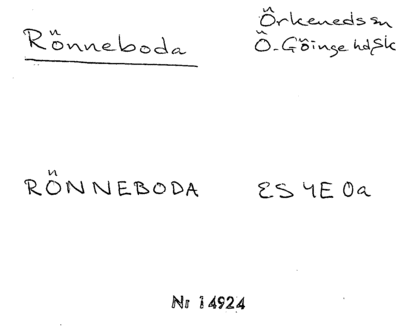 Rönneboda
Örkeneds sn
Ö-Göinge hd, Sk
RÖNNEBODA
ES 4E 0a
Nr 14924